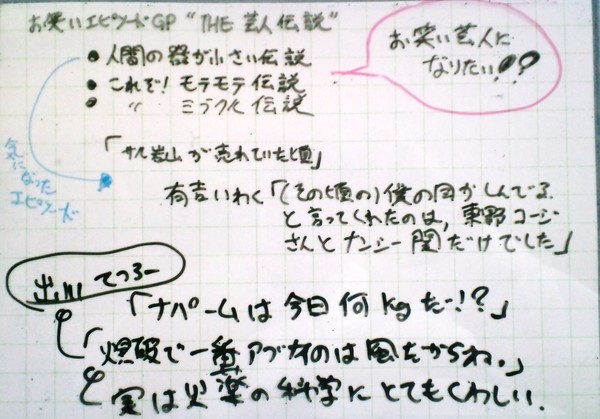 お笑いエピソードGP "THE 芸人伝説"
● 人間の器が小さい伝説
● これぞ！モテモテ伝説
● 〃 ミラクル伝説
お笑い芸人に
なりたい!?
「サル岩山が売れていた頃」
気に
なった
エピソード
有吉いわく「(その頃の)僕の目がしんでる
と言ってくれたのは、東野コージ
さんとナンシー関だけでした」
出川 てつろー
「ナパームは今日何kgだ!?」
「爆破で一番アブナイのは風だからね。」
実は火薬の科学にとてもくわしい.